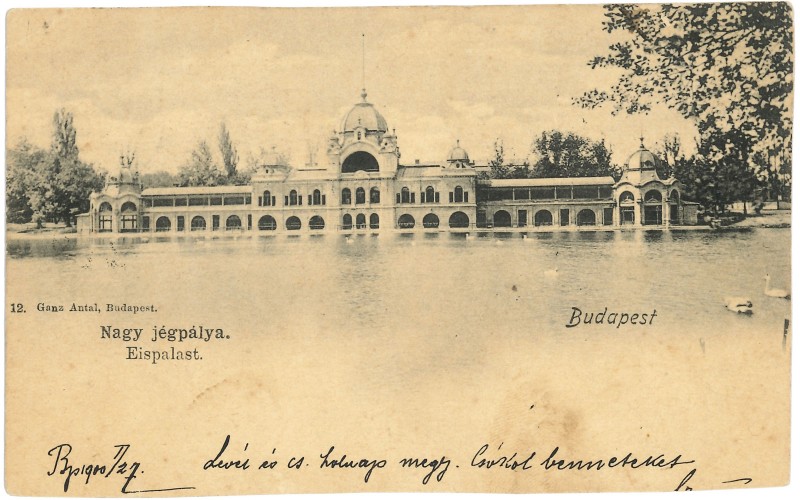 12. Ganz Antal, Budapest.
Nagy jégpálya.
Eispalast.
Budapest
Bp 1900 I/27. Levél és cs. holnap megy. Csókol benneteket